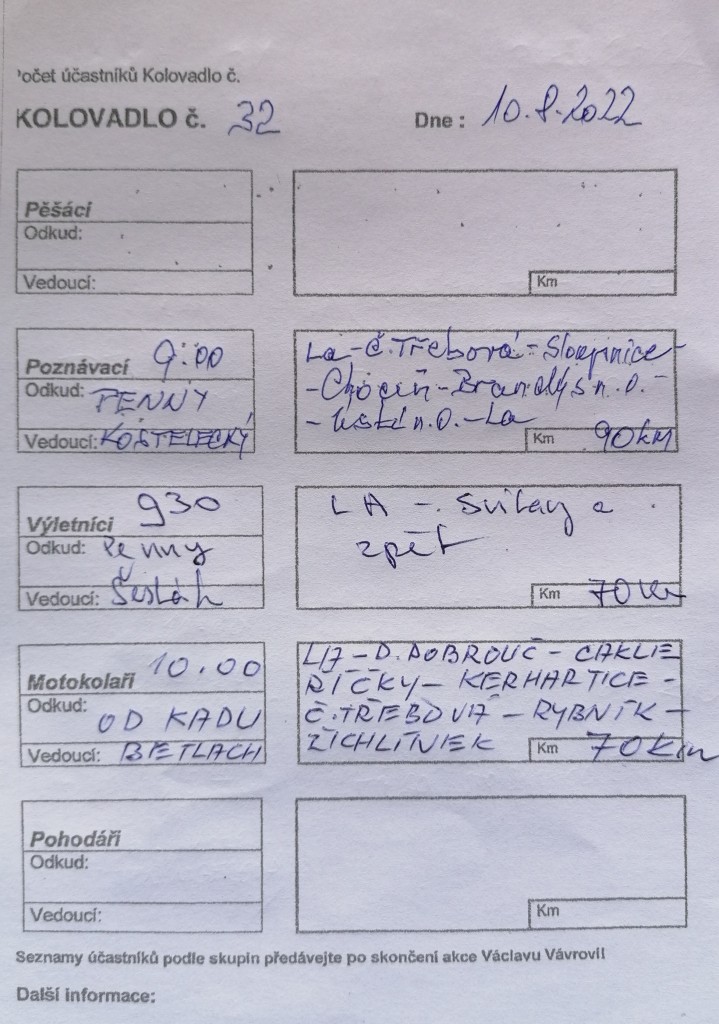 Počet účastníků Kolovadlo č.
KOLOVADLO č. 32 Dne : 10.8.2022
Pěšáci
Odkud:
Vedoucí:
Km
Poznávací 9:00
Odkud: PENNY
Vedoucí: KOSTELECKÝ
La-Č.Třebová-Sloupnice-
-Choceň-Brandýs n.O.-
-Ústí n.O.-La
Km 90KM
Výletníci 930
Odkud: Penny
Vedoucí: Šesták
LA - Svitavy a
zpět
Km 70 Km
Motokolaři 10.00
Odkud: OD KADU
Vedoucí: BETLACH
LA-D.DOBROUČ-CAKLE
ŘÍČKY-KERHARTICE-
Č.TŘEBOVÁ-RYBNÍK-
ŽICHLÍNEK
Km 70Km
Pohodáři
Odkud:
Vedoucí:
Km
Seznamy účastníků podle skupin předávejte po skončení akce Václavu Vávrovi!
Další informace: